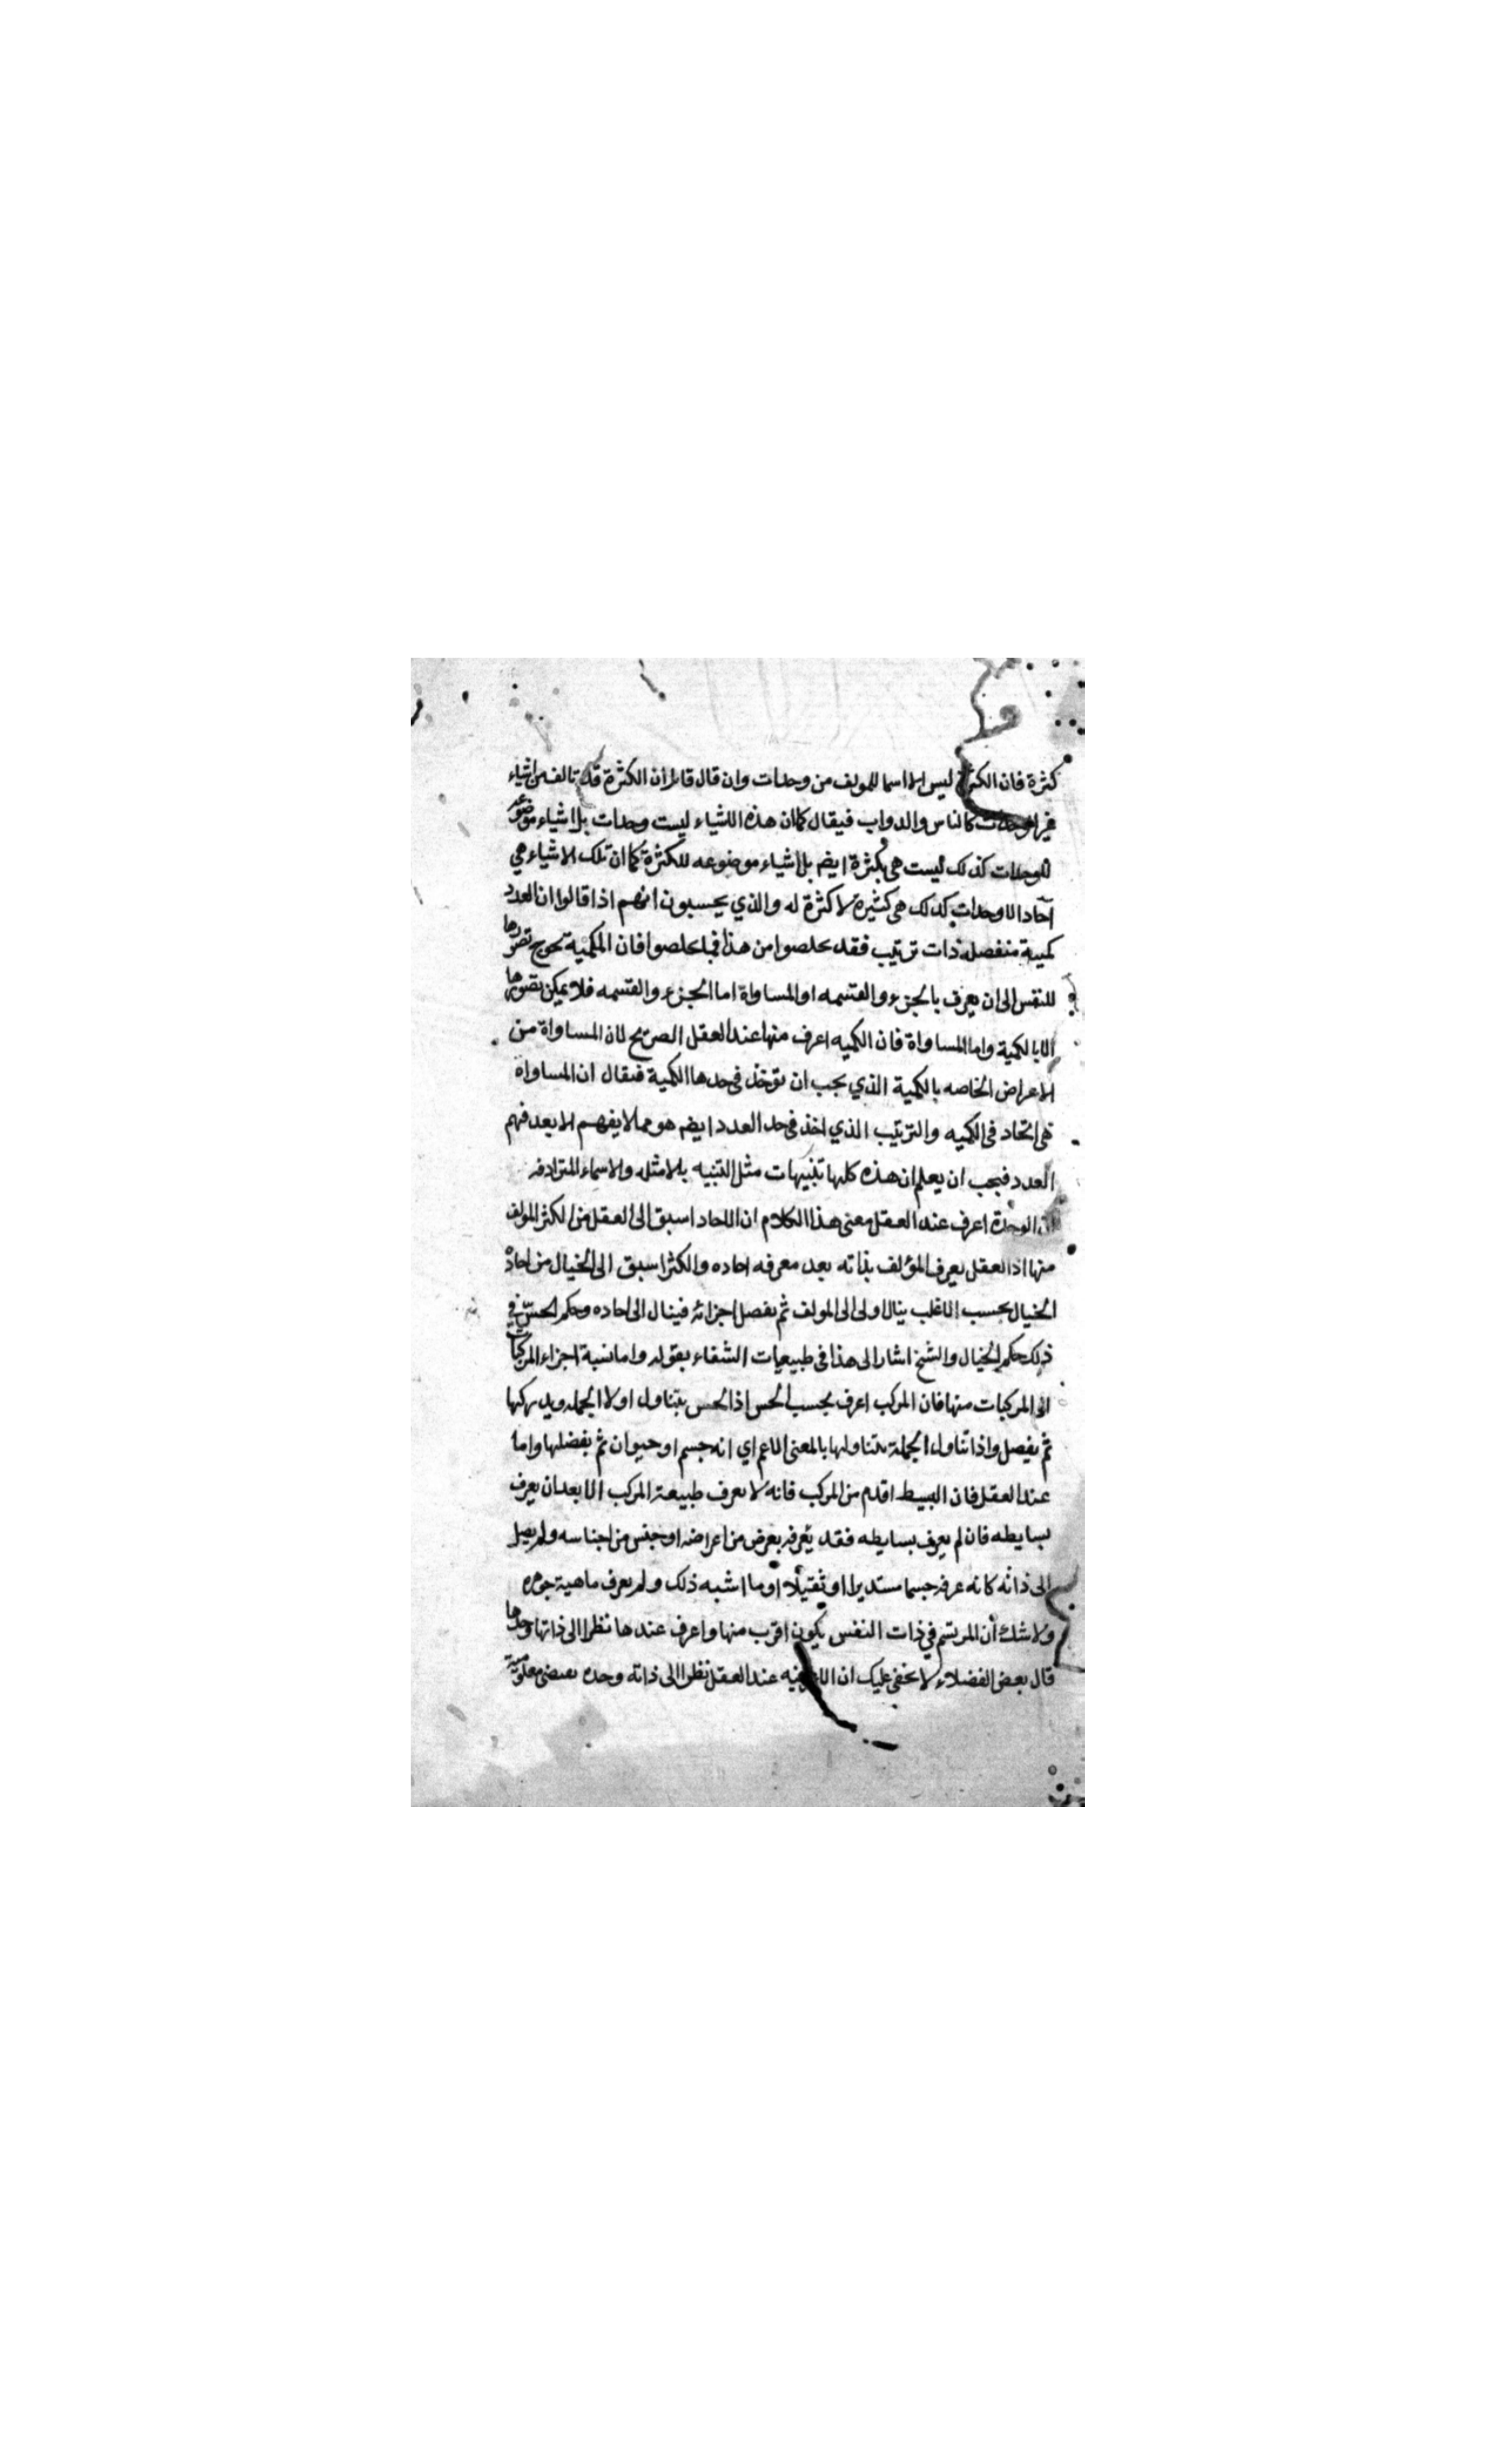 كثرة فان الكثرة ليس الا اسما للمولف من وحدات وان قال قايل ان الكثرة قد تالف من اشياء
غير الوحدات كالناس والدواب فيقال كما ان هذه الاشياء ليست وحدات بل اشياء موضوعه
للوحدات كذلك ليست هي بكثرة ايضم بل اشياء موضوعه للكثرة كما ان تلك الاشياء هي
آحاد لا وحدات كذلك هي كثيرة لا كثرة له والذي يحسبون انهم اذا قالوا ان العدد
كمية منفصلة ذات ترتيب فقد خلصوا من هذا فما خلصوا فان الكمية تحوج تصورها
للنفس الى ان يعرف بالجزء والقسمه او المساواة اما الجزء والقسمه فلا يمكن تصورها
الا بالكمية واما المساواة فان الكميه اعرف منها عند العقل الصريح لان المساواة من
الاعراض الخاصه بالكمية الذي يجب ان توخذ في حدها الكمية فيقال ان المساواه
هى اتحاد فى الكميه والترتيب الذي اخذ فى حد العدد ايضم هو مما لا يفهم الا بعد فهم
العدد فيجب ان يعلم ان هذه كلها تنبيهات مثل التنبيه بالامثله والاسماء المترادفه
ان الوحدة اعرف عند العقل معنى هذا الكلام ان الاحاد اسبق الى العقل من الكثر المولف
منها اذ العقل يعرف المؤلف بذاته بعد معرفه احاده والكثر اسبق الى الخيال من احاده
الخيال بحسب الاغلب ينال اولى الى المولف ثم يفصل اجزائه فينال الى احاده وحكم الحس في
ذلك حكم الخيال والشيخ اشار الى هذا فى طبيعيات الشفاء بقوله واما نسبة اجزاء المركبات
الى المركبات منها فان المركب اعرف بحسب الحس اذ الحس يتناول اولا الجمله ويدركها
ثم يفصل واذا تناول الجملة يتناولها بالمعنى الاعم اي انه جسم او حيوان ثم يفصلها واما
عند العقل فان البسيط اقدم من المركب فانه لا يعرف طبيعة المركب الا بعد ان يعرف
بسايطه فان لم يعرف بسايطه فقد يعرفه بعرض من اعراضه او جنس من اجناسه ولم يصل
الى ذاته كانه عرفه جسما مستديرا او ثقيلا او ما اشبه ذلك ولم يعرف ماهية جوهره
ولا شك أن المرتسم في ذات النفس يكون اقرب منها واعرف عندها نظرا الى ذاتها وحدها
قال بعض الفضلاء لا يخفى عليك ان الاعرفيه عند العقل نظرا الى ذاته وحده يقتضى معلومية